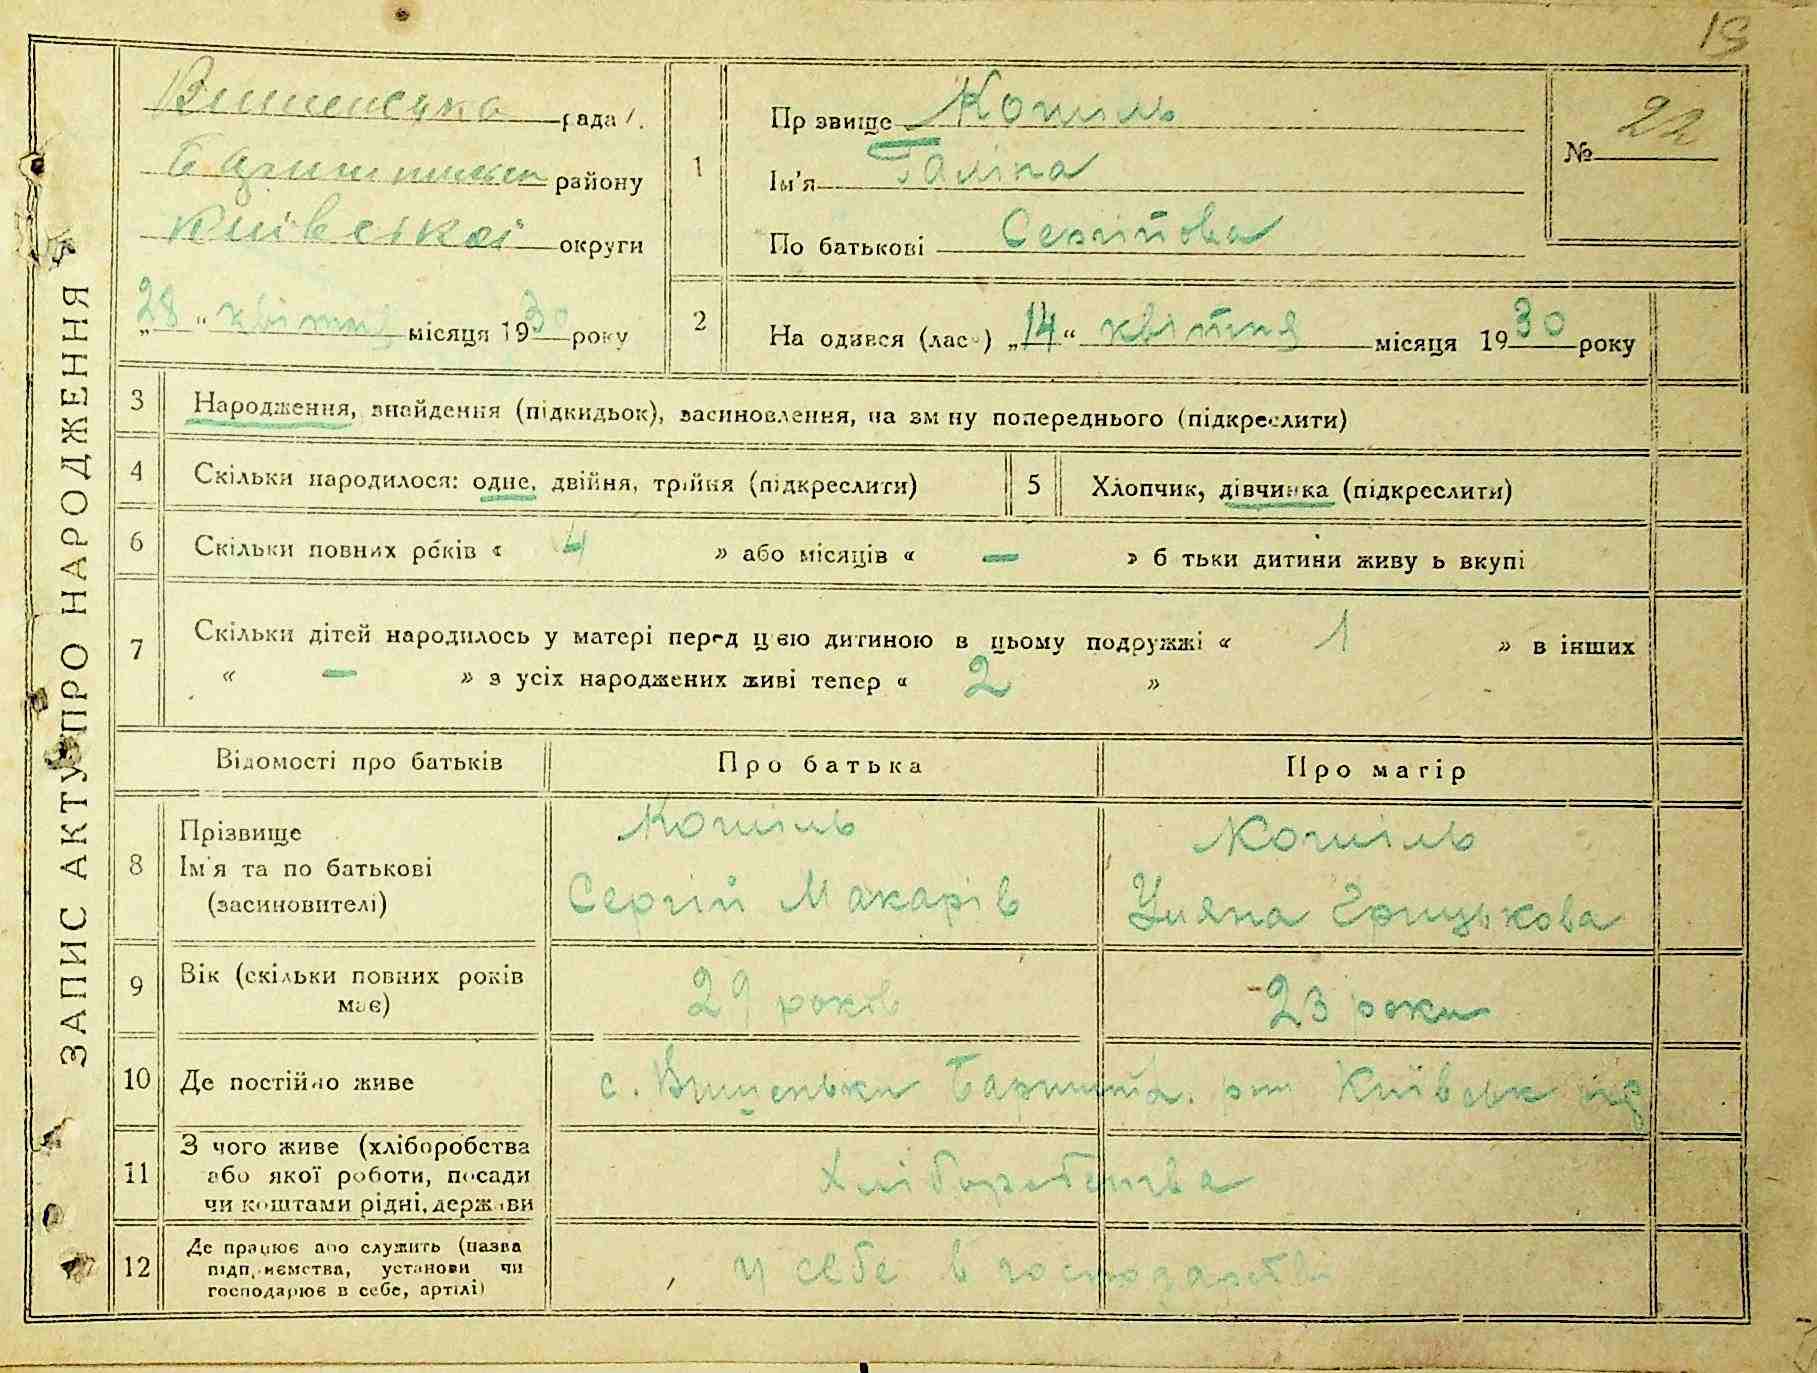 18
ЗАПИС АКТУ ПРО НАРОДЖЕННЯ
рада
району
Київської округи
„28“ квітня місяця 1930 року
1
Пр звище Кошіль
Ім'я Галіна
По батькові Сергіївна
№ 22
2
На одився (лас) „14“ квітня місяця 1930 року
3 Народження, знайдення (підкидьок), засиновлення, на зм ну попереднього (підкреслити)
4 Скільки народилося: одне, двійня, трійня (підкреслити)
5 Хлопчик, дівчинка (підкреслити)
6 Скільки повних років « 4 » або місяців « — » б тьки дитини живу ь вкупі
7 Скільки дітей народилось у матері перед цією дитиною в цьому подружжі « 1 » в інших
« — » з усіх народжених живі тепер « 2 »
Відомості про батьків Про батька Про матір
8
Прізвище
Ім'я та по батькові
(засиновителі)
Кошіль
Сергій Макарів
Кошіль
Уляна Грицькова
9
Вік (скільки повних років
має)
29 років
23 роки
10 Де постійно живе
с. Вишеньки Київськ
11
З чого живе (хліборобства
або якої роботи, посади
чи коштами рідні, держави
Хліборобства
12
Де працює або служить (назва
підп иємства, установи чи
господарює в себе, артілі)
у себе в господарстві